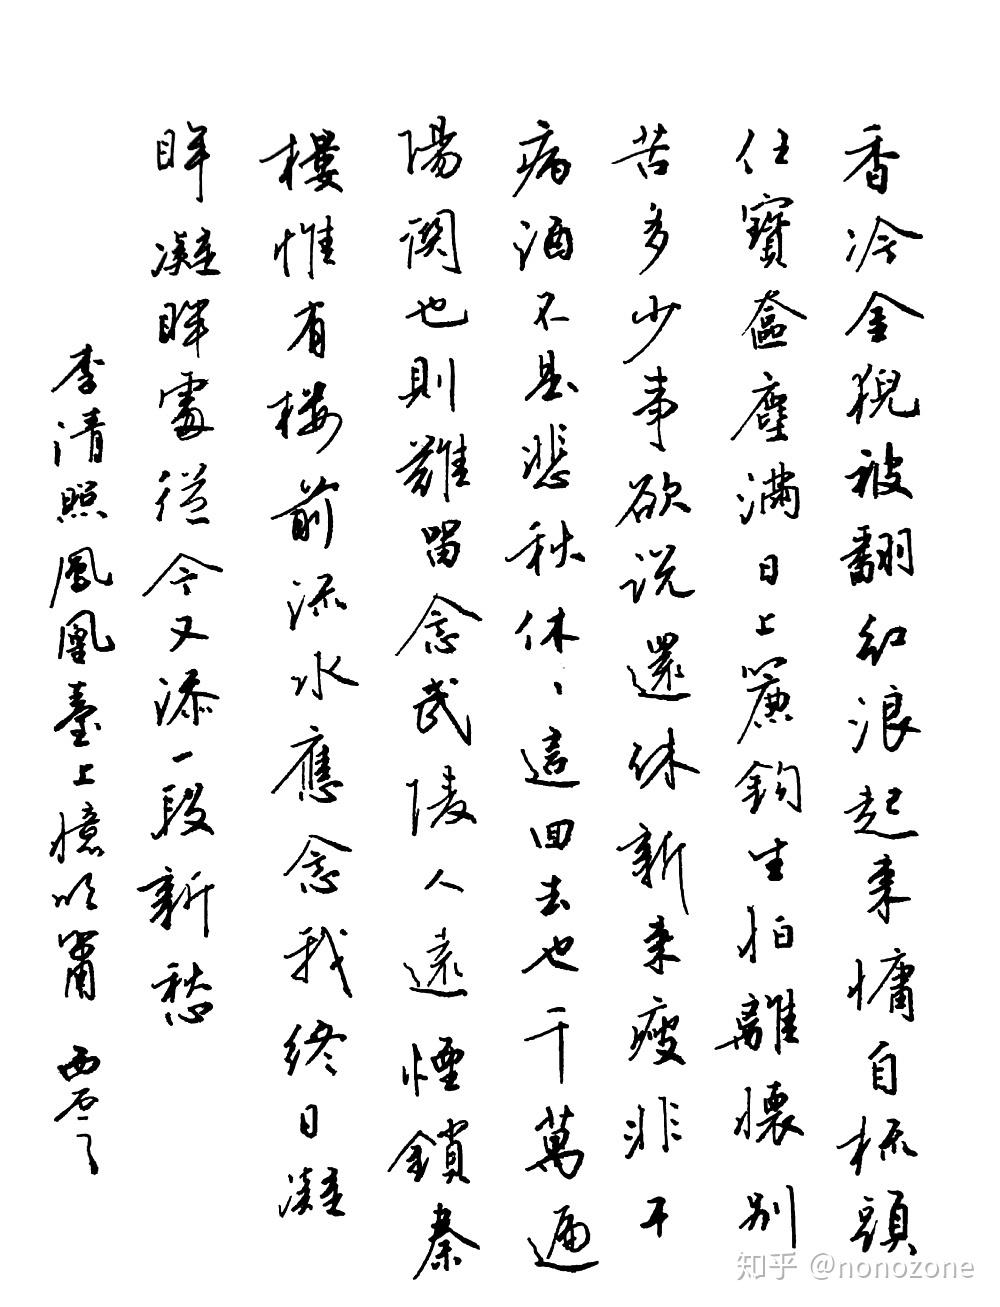 香冷金猊被翻紅浪起来慵自梳頭
任寶奩塵滿日上簾鈎生怕離懷别
苦多少事欲说還休新来瘦非干
病酒不是悲秋休、這回去也千萬遍
陽関也則難留念武陵人遠煙鎖秦
樓惟有楼前流水應念我終日凝
眸凝眸處從今又添一段新愁
李清照鳳凰臺上憶吹簫
知乎 @nonozone